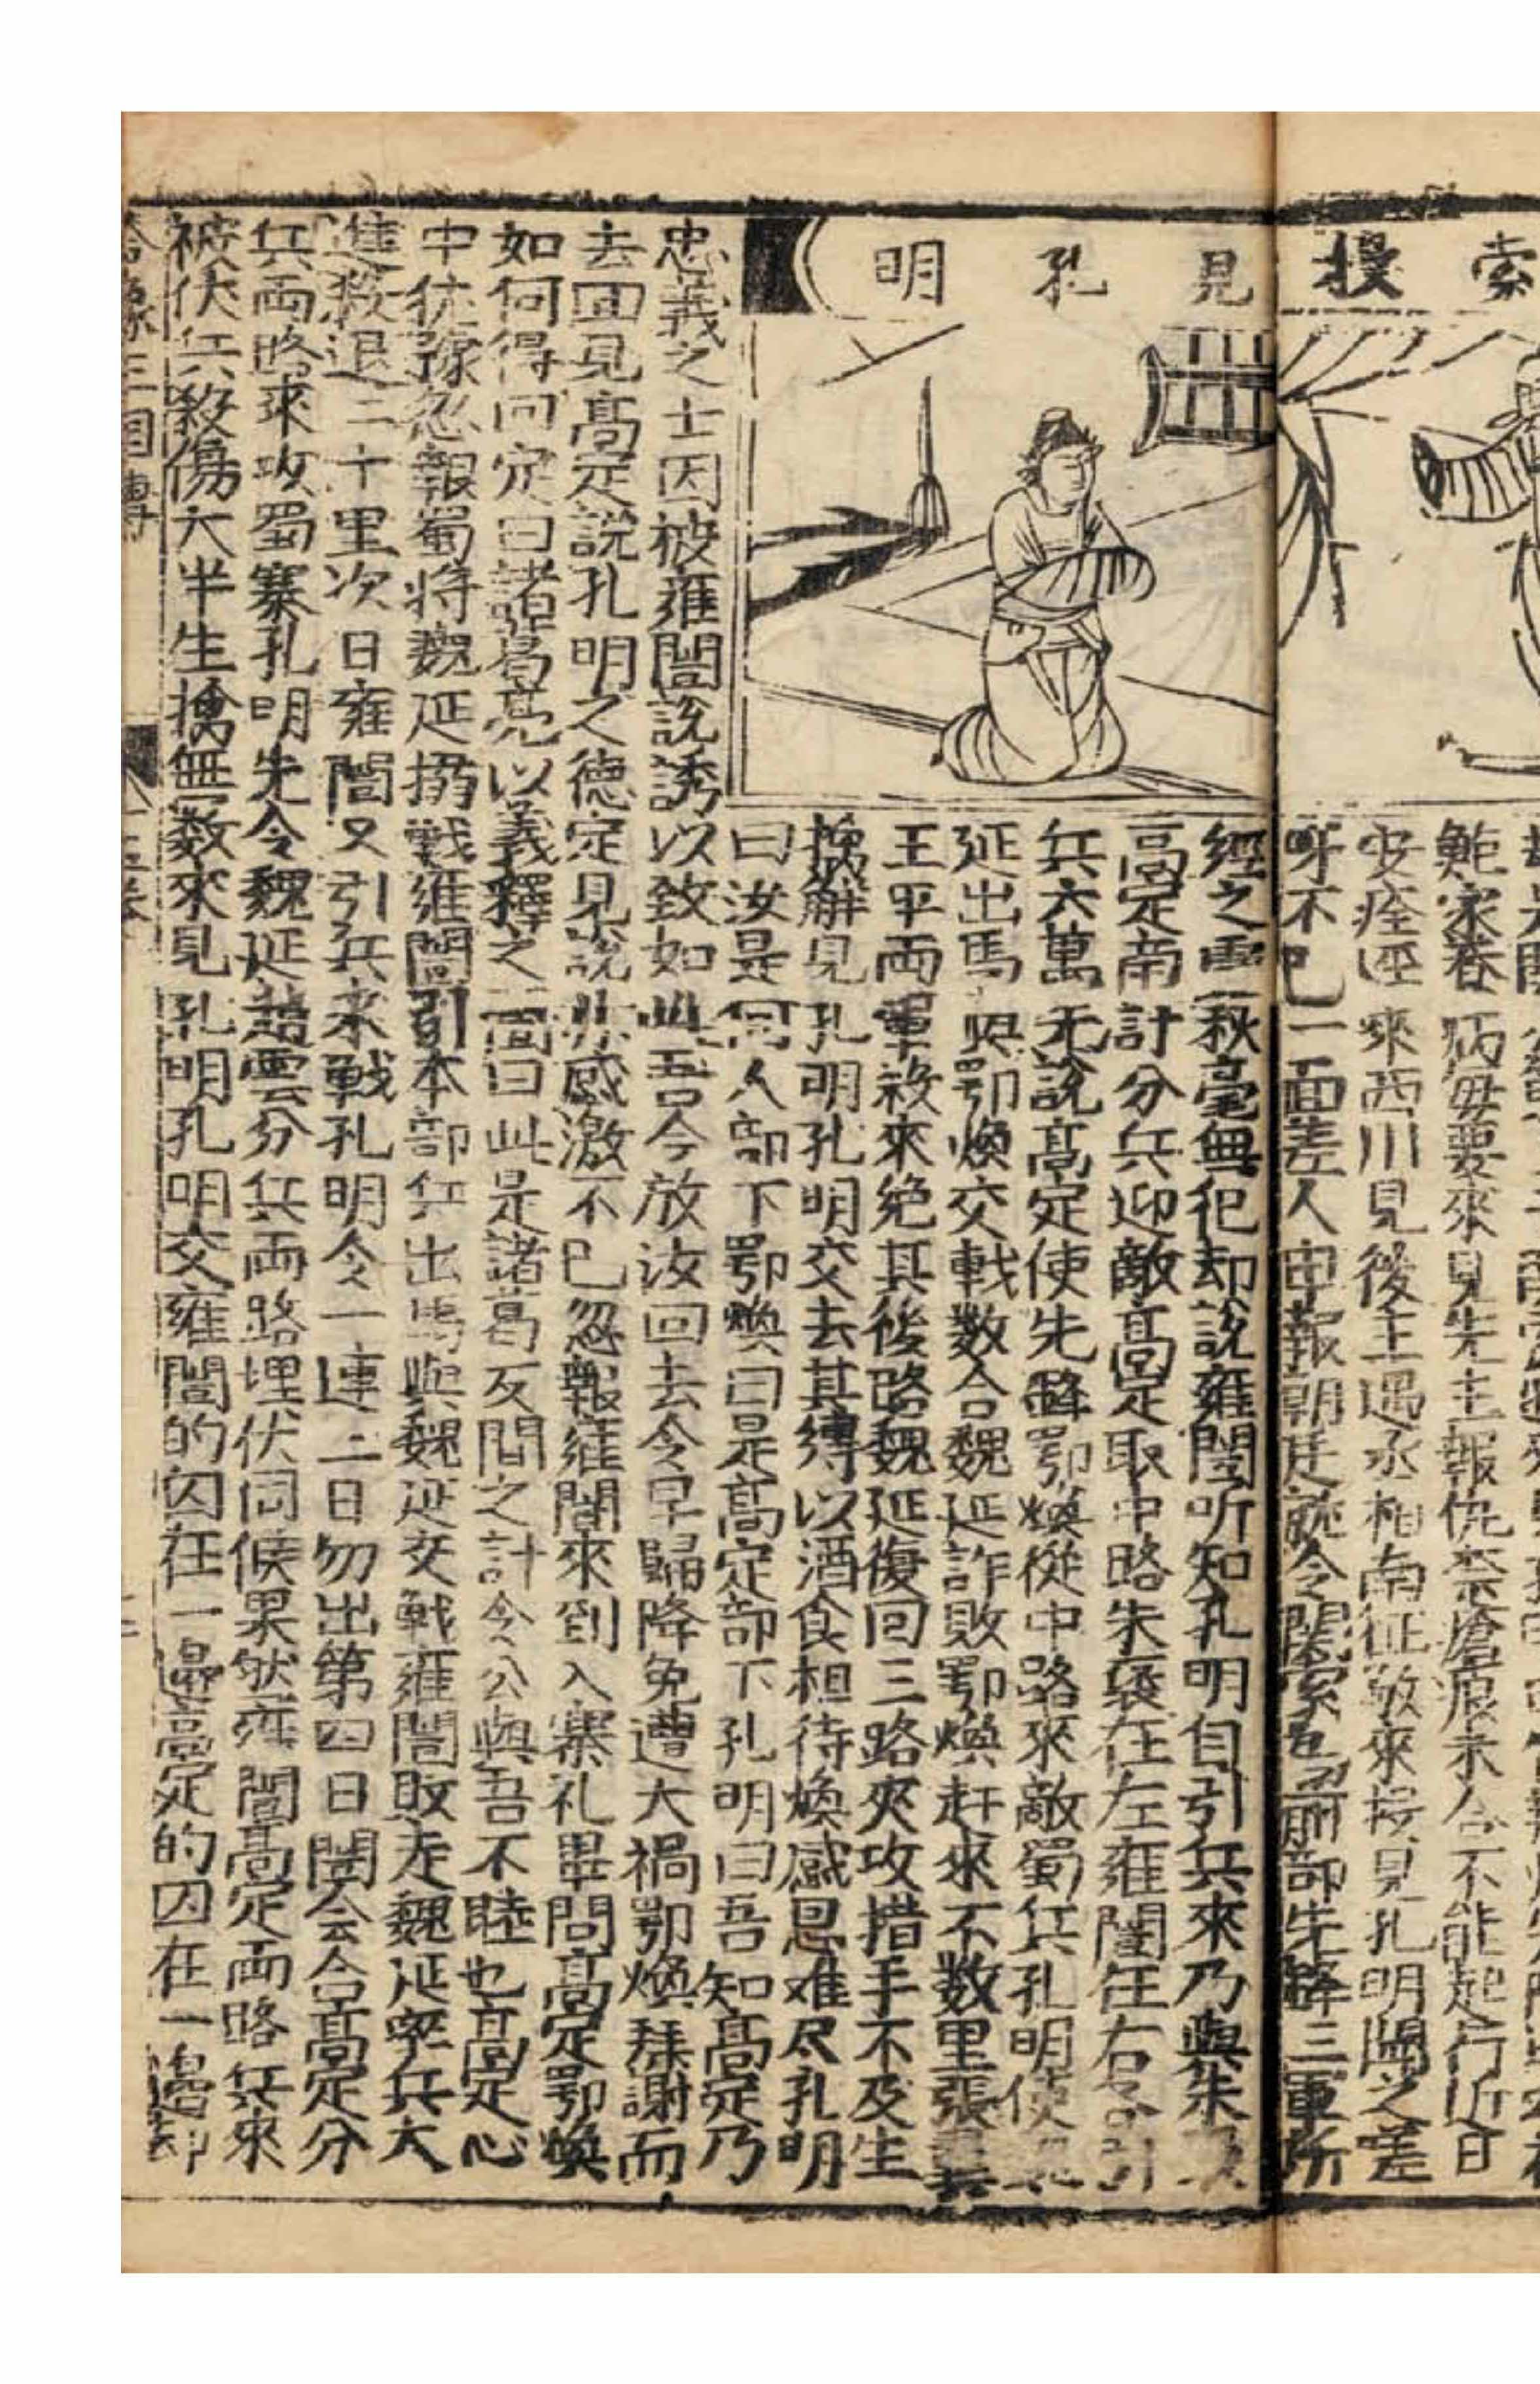 索搜
見孔明
鮑家養病每要來見先主報仇奈瘡痕未合不能起行近日
安痊逕來西川見後主遇丞相南征敬來接見孔明聞之嗟
呀不已一面差人申報朝廷就令關索為前部先鋒三軍所
經之處秋毫無犯却說雍闓听知孔明自引兵來乃與朱褒
高定商計分兵迎敵高定取中路朱褒在左雍闓在右各引
兵六萬先說高定使先鋒鄂煥從中路來敵蜀兵孔明使魏
延出馬與鄂煥交戰数合魏延詐敗鄂煥赶來不数里張翼
王平両軍殺來絶其後路魏延復回三路夾攻措手不及生
擒解見孔明孔明交去其縛以酒食相待煥感恩难尽孔明
曰汝是何人部下鄂煥曰是高定部下孔明曰吾知高定乃
忠義之士因被雍闓說誘以致如此吾今放汝回去令早歸降免遭大禍鄂煥拜謝而
去回見高定說孔明之德定見說亦感激不已忽報雍闓來到入寨礼畢問高定鄂煥
如何得回定曰諸葛亮以義釋之闓曰此是諸葛反間之計令公與吾不睦也高定心
中犹豫忽報蜀将魏延搦戰雍闓引本部兵出馬與魏延交戰雍闓敗走魏延率兵大
進殺退三十里次日雍闓又引兵來戰孔明令一連三日勿出第四日闓会合高定分
兵両路來攻蜀寨孔明先令魏延趙雲分兵両路埋伏伺候果然雍闓高定両路兵來
被伏兵殺傷大半生擒無数來見孔明孔明交雍闓的囚在一邊高定的囚在一邊却
三国傳